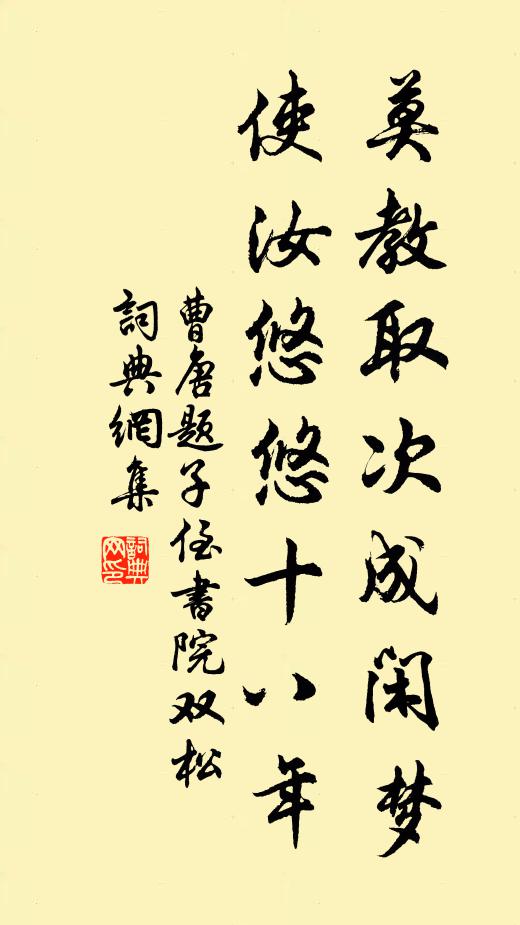 莫教取次成闲梦
使汝悠悠十八年
曹唐题子侄书院双松
詞典網集
詞典网印